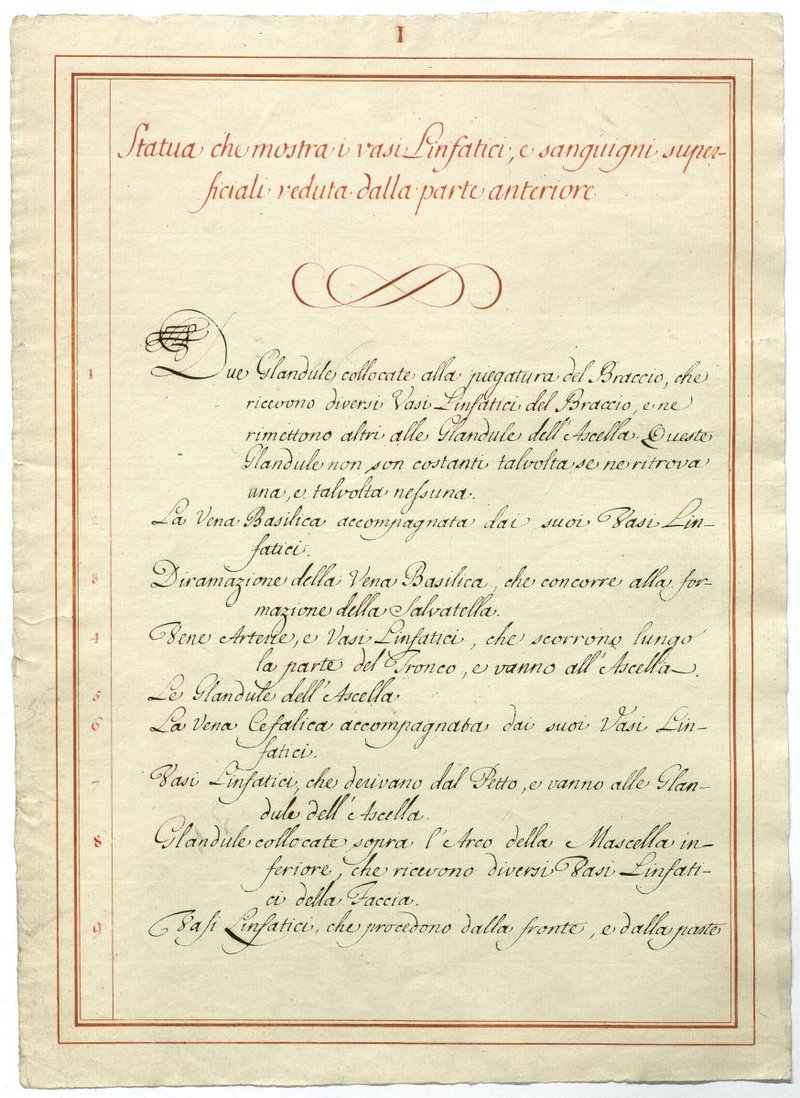 I
Statua che mostra i vasi Linfatici, e sanguigni super-
ficiali veduta dalla parte anteriore
1 Due Glandule collocate alla piegatura del Braccio, che
ricevono diversi Vasi Linfatici del Braccio, e ne
rimettono altri alle Glandule dell'Ascella. Queste
Glandule non son costanti talvolta se ne ritrova
una, e talvolta nessuna.
2 La Vena Basilica accompagnata dai suoi Vasi Lin-
fatici.
3 Diramazione della Vena Basilica, che concorre alla for-
mazione della Salvatella.
4 Vene Arterie, e Vasi Linfatici, che scorrono lungo
la parte del Tronco, e vanno all'Ascella.
5 Le Glandule dell'Ascella
6 La Vena Cefalica accompagnata dai suoi Vasi Lin-
fatici.
7 Vasi Linfatici, che derivano dal Petto, e vanno alle Glan-
dule dell'Ascella.
8 Glandule collocate sopra l'Arco della Mascella in-
feriore, che ricevono diversi Vasi Linfati-
ci della Faccia.
9 Vasi Linfatici, che procedono dalla fronte, e dalla parte